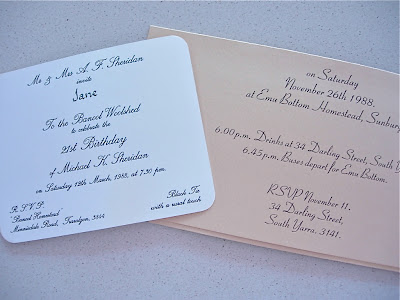 Mr & Mrs A. F. Sheridan
invite
Jane
To the Bancol Woolshed
to celebrate the
21st Birthday
of Michael K. Sheridan
on Saturday 12th March, 1988, at 7.30 pm.
R.S.V.P.
"Bancol Homestead"
Minniedale Road, Traralgon, 3844
Black Tie
with a usual touch
on Saturday
November 26th 1988.
at Emu Bottom Homestead, Sunbury
6.00 p.m. Drinks at 34 Darling Street, South
6.45 p.m. Buses depart for Emu Bottom.
RSVP November 11.
34 Darling Street,
South Yarra, 3141.